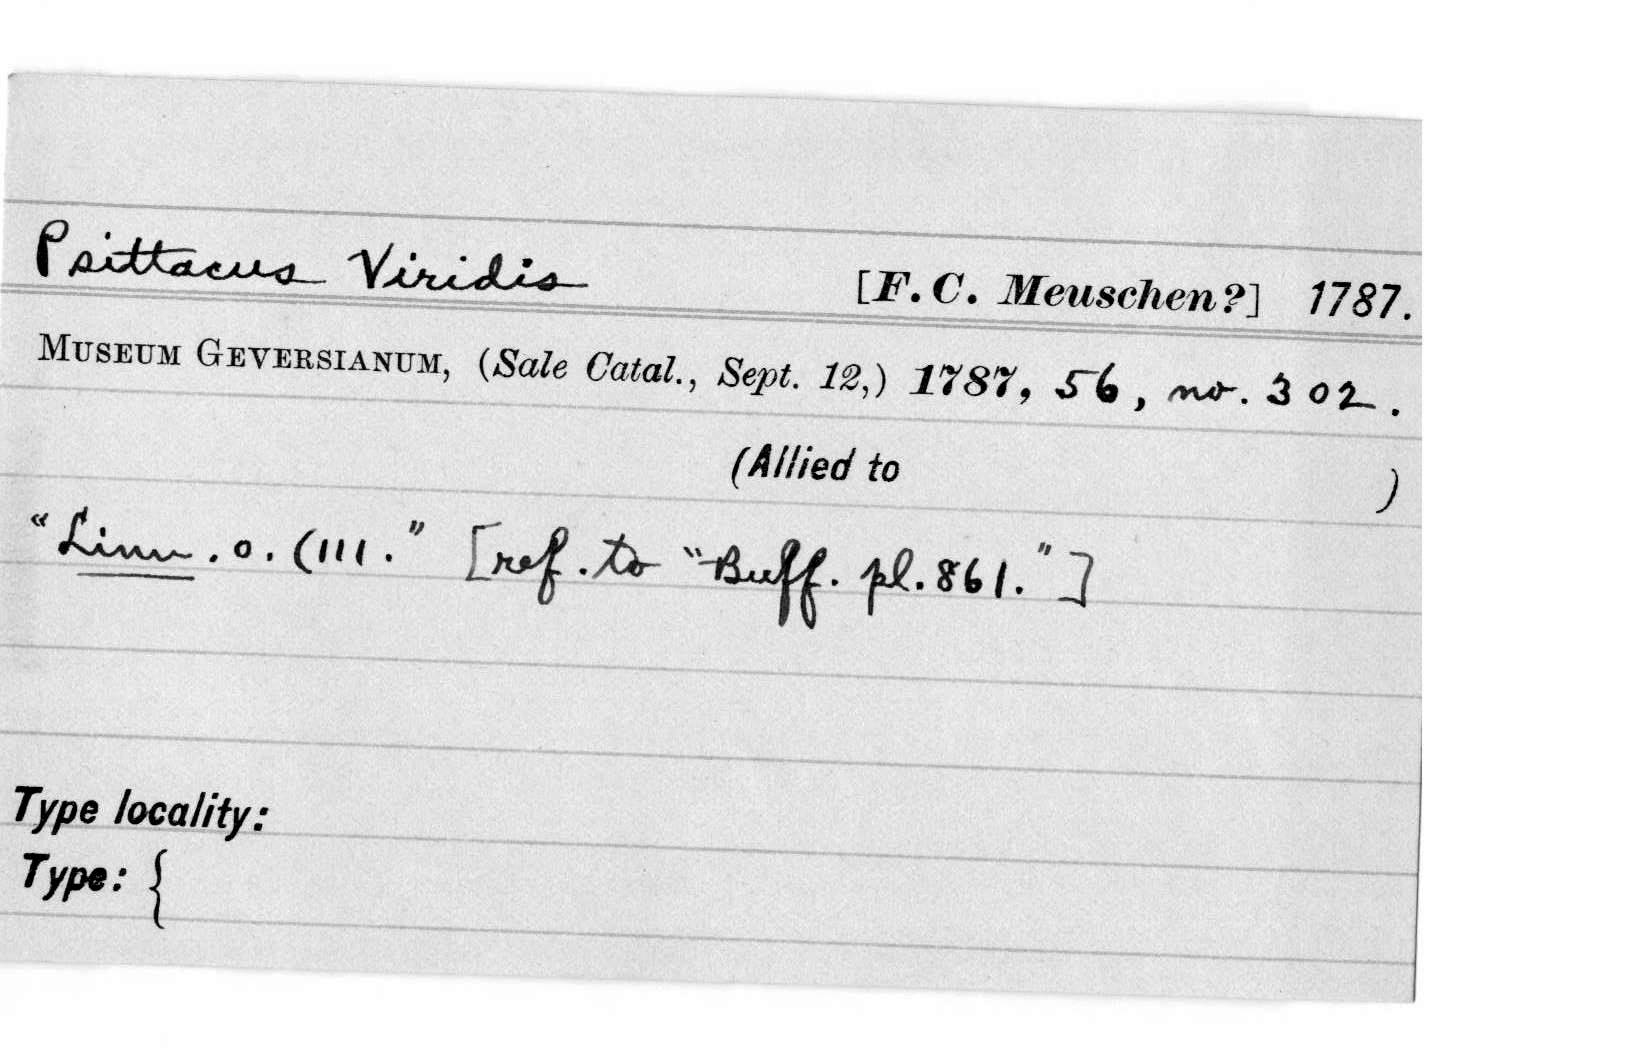 Psittacus Viridis [F. C. Meuschen?] 1787.
MUSEUM GEVERSIANUM, (Sale Catal., Sept. 12,) 1787, 56, no. 302.
(Allied to )
"Linn. o. (111." [ref. to "Buff. pl. 861."]
Type locality:
Type: {